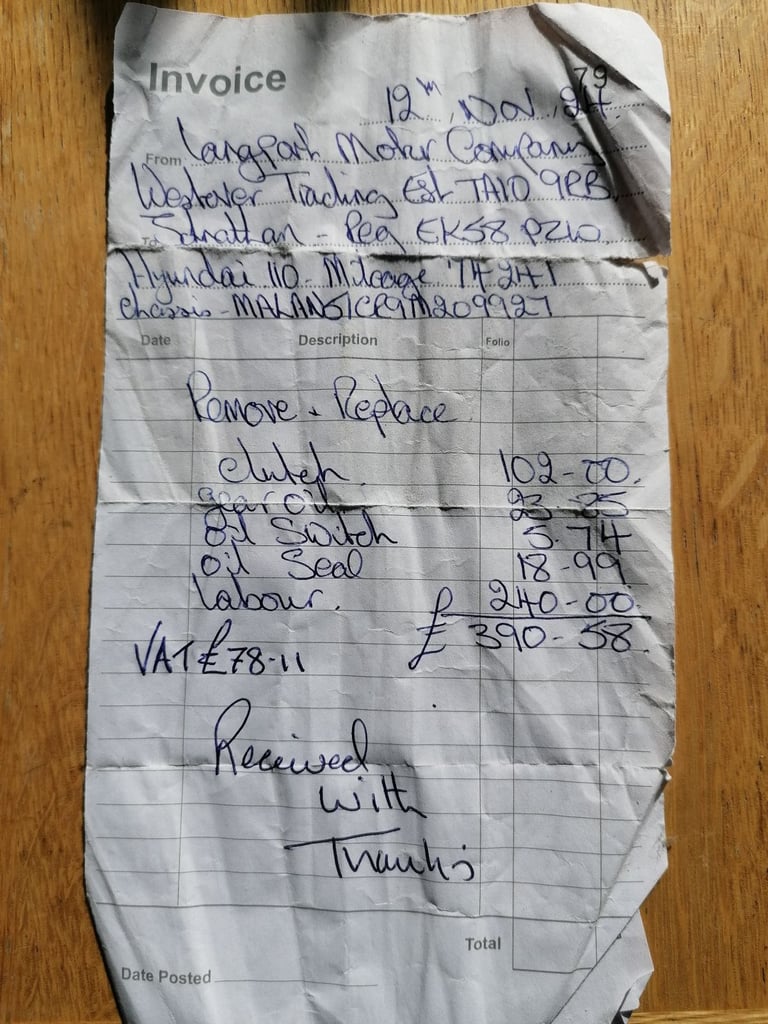 Invoice
79
12th Nov 24.
From Langport Motor Company
Westover Trading Est TA10 9RB
To - Reg EK58
Hyundai i10 - Mileage 74241
Chassis - MALAN51CR9M209927
Date Description Folio
Remove + Replace
clutch 102-00.
gear oil 23-85
Oil Switch 5-74
Oil Seal 18-99
Labour. £ 240-00
£ 390-58.
VAT £78-11
Received
With
Thanks
Total
Date Posted